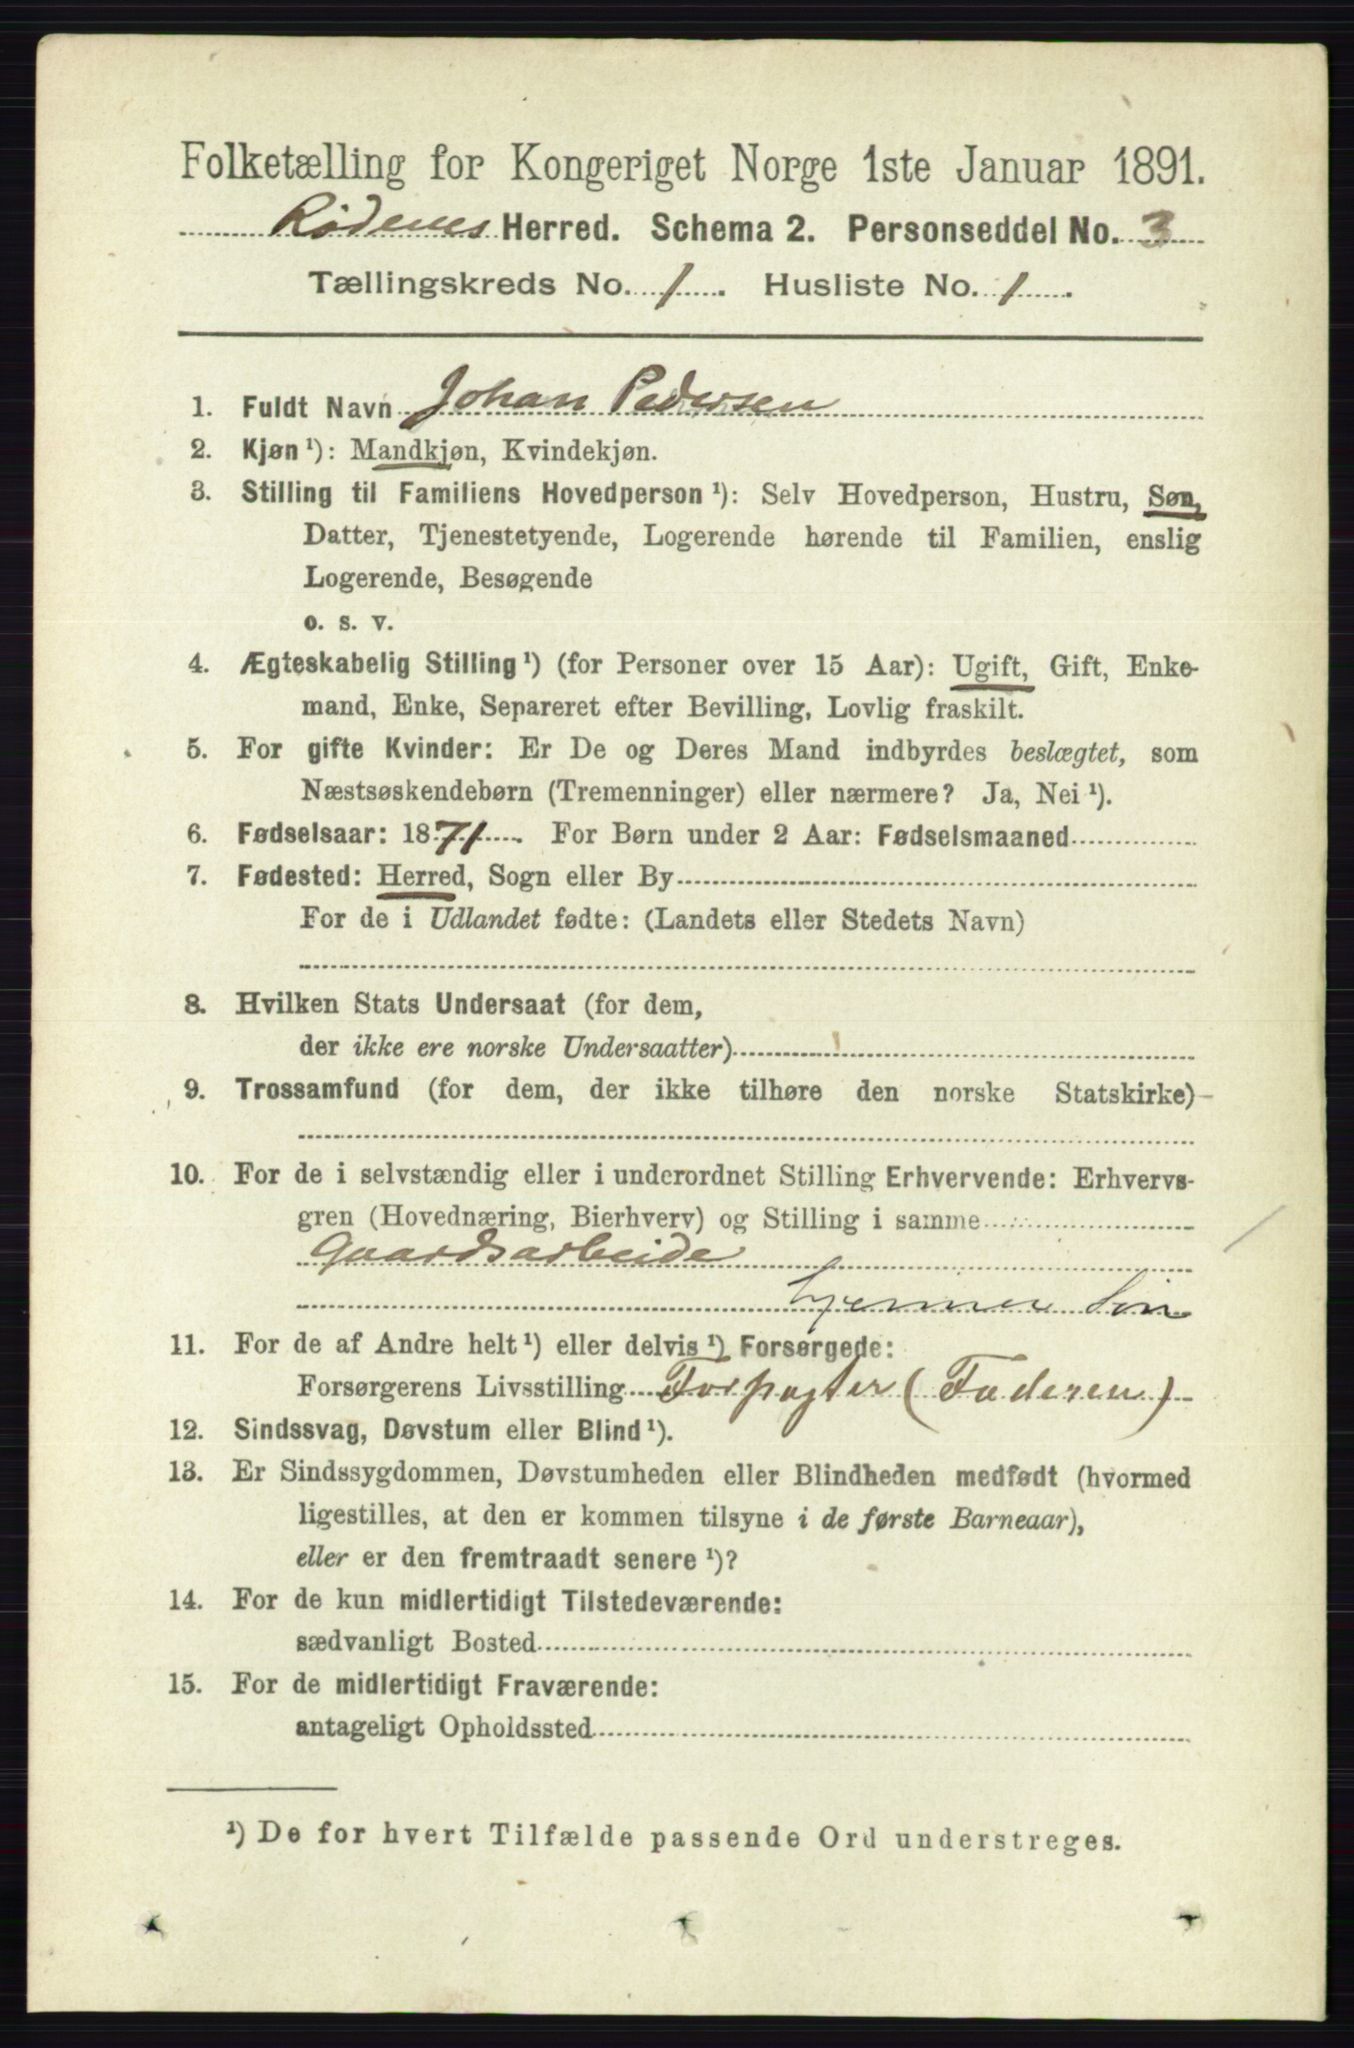 Folketælling for Kongeriget Norge 1ste Januar 1891.
Rødenes Herred. Schema 2. Personseddel No. 3
Tællingskreds No. 1. Husliste No. 1.
1. Fuldt Navn Johan Pedersen
2. Kjøn ¹): Mandkjøn, Kvindekjøn.
3. Stilling til Familiens Hovedperson ¹): Selv Hovedperson, Hustru, Søn,
Datter, Tjenestetyende, Logerende hørende til Familien, enslig
Logerende, Besøgende
o. s. v.
4. Ægteskabelig Stilling ¹) (for Personer over 15 Aar): Ugift, Gift, Enke-
mand, Enke, Separeret efter Bevilling, Lovlig fraskilt.
5. For gifte Kvinder: Er De og Deres Mand indbyrdes beslægtet, som
Næstsøskendebørn (Tremenninger) eller nærmere? Ja, Nei ¹).
6. Fødselsaar: 1871. For Børn under 2 Aar: Fødselsmaaned
7. Fødested: Herred, Sogn eller By
For de i Udlandet fødte: (Landets eller Stedets Navn)
8. Hvilken Stats Undersaat (for dem,
der ikke ere norske Undersaatter)
9. Trossamfund (for dem, der ikke tilhøre den norske Statskirke)
10. For de i selvstændig eller i underordnet Stilling Erhvervende: Erhvervs-
gren (Hovednæring, Bierhverv) og Stilling i samme
Gaardsarbeide
hjemmev Søn
11. For de af Andre helt ¹) eller delvis ¹) Forsørgede:
Forsørgerens Livsstilling Forpagter (Faderen)
12. Sindssvag, Døvstum eller Blind ¹).
13. Er Sindssygdommen, Døvstumheden eller Blindheden medfødt (hvormed
ligestilles, at den er kommen tilsyne i de første Barneaar),
eller er den fremtraadt senere ¹)?
14. For de kun midlertidigt Tilstedeværende:
sædvanligt Bosted
15. For de midlertidigt Fraværende:
antageligt Opholdssted
¹) De for hvert Tilfælde passende Ord understreges.